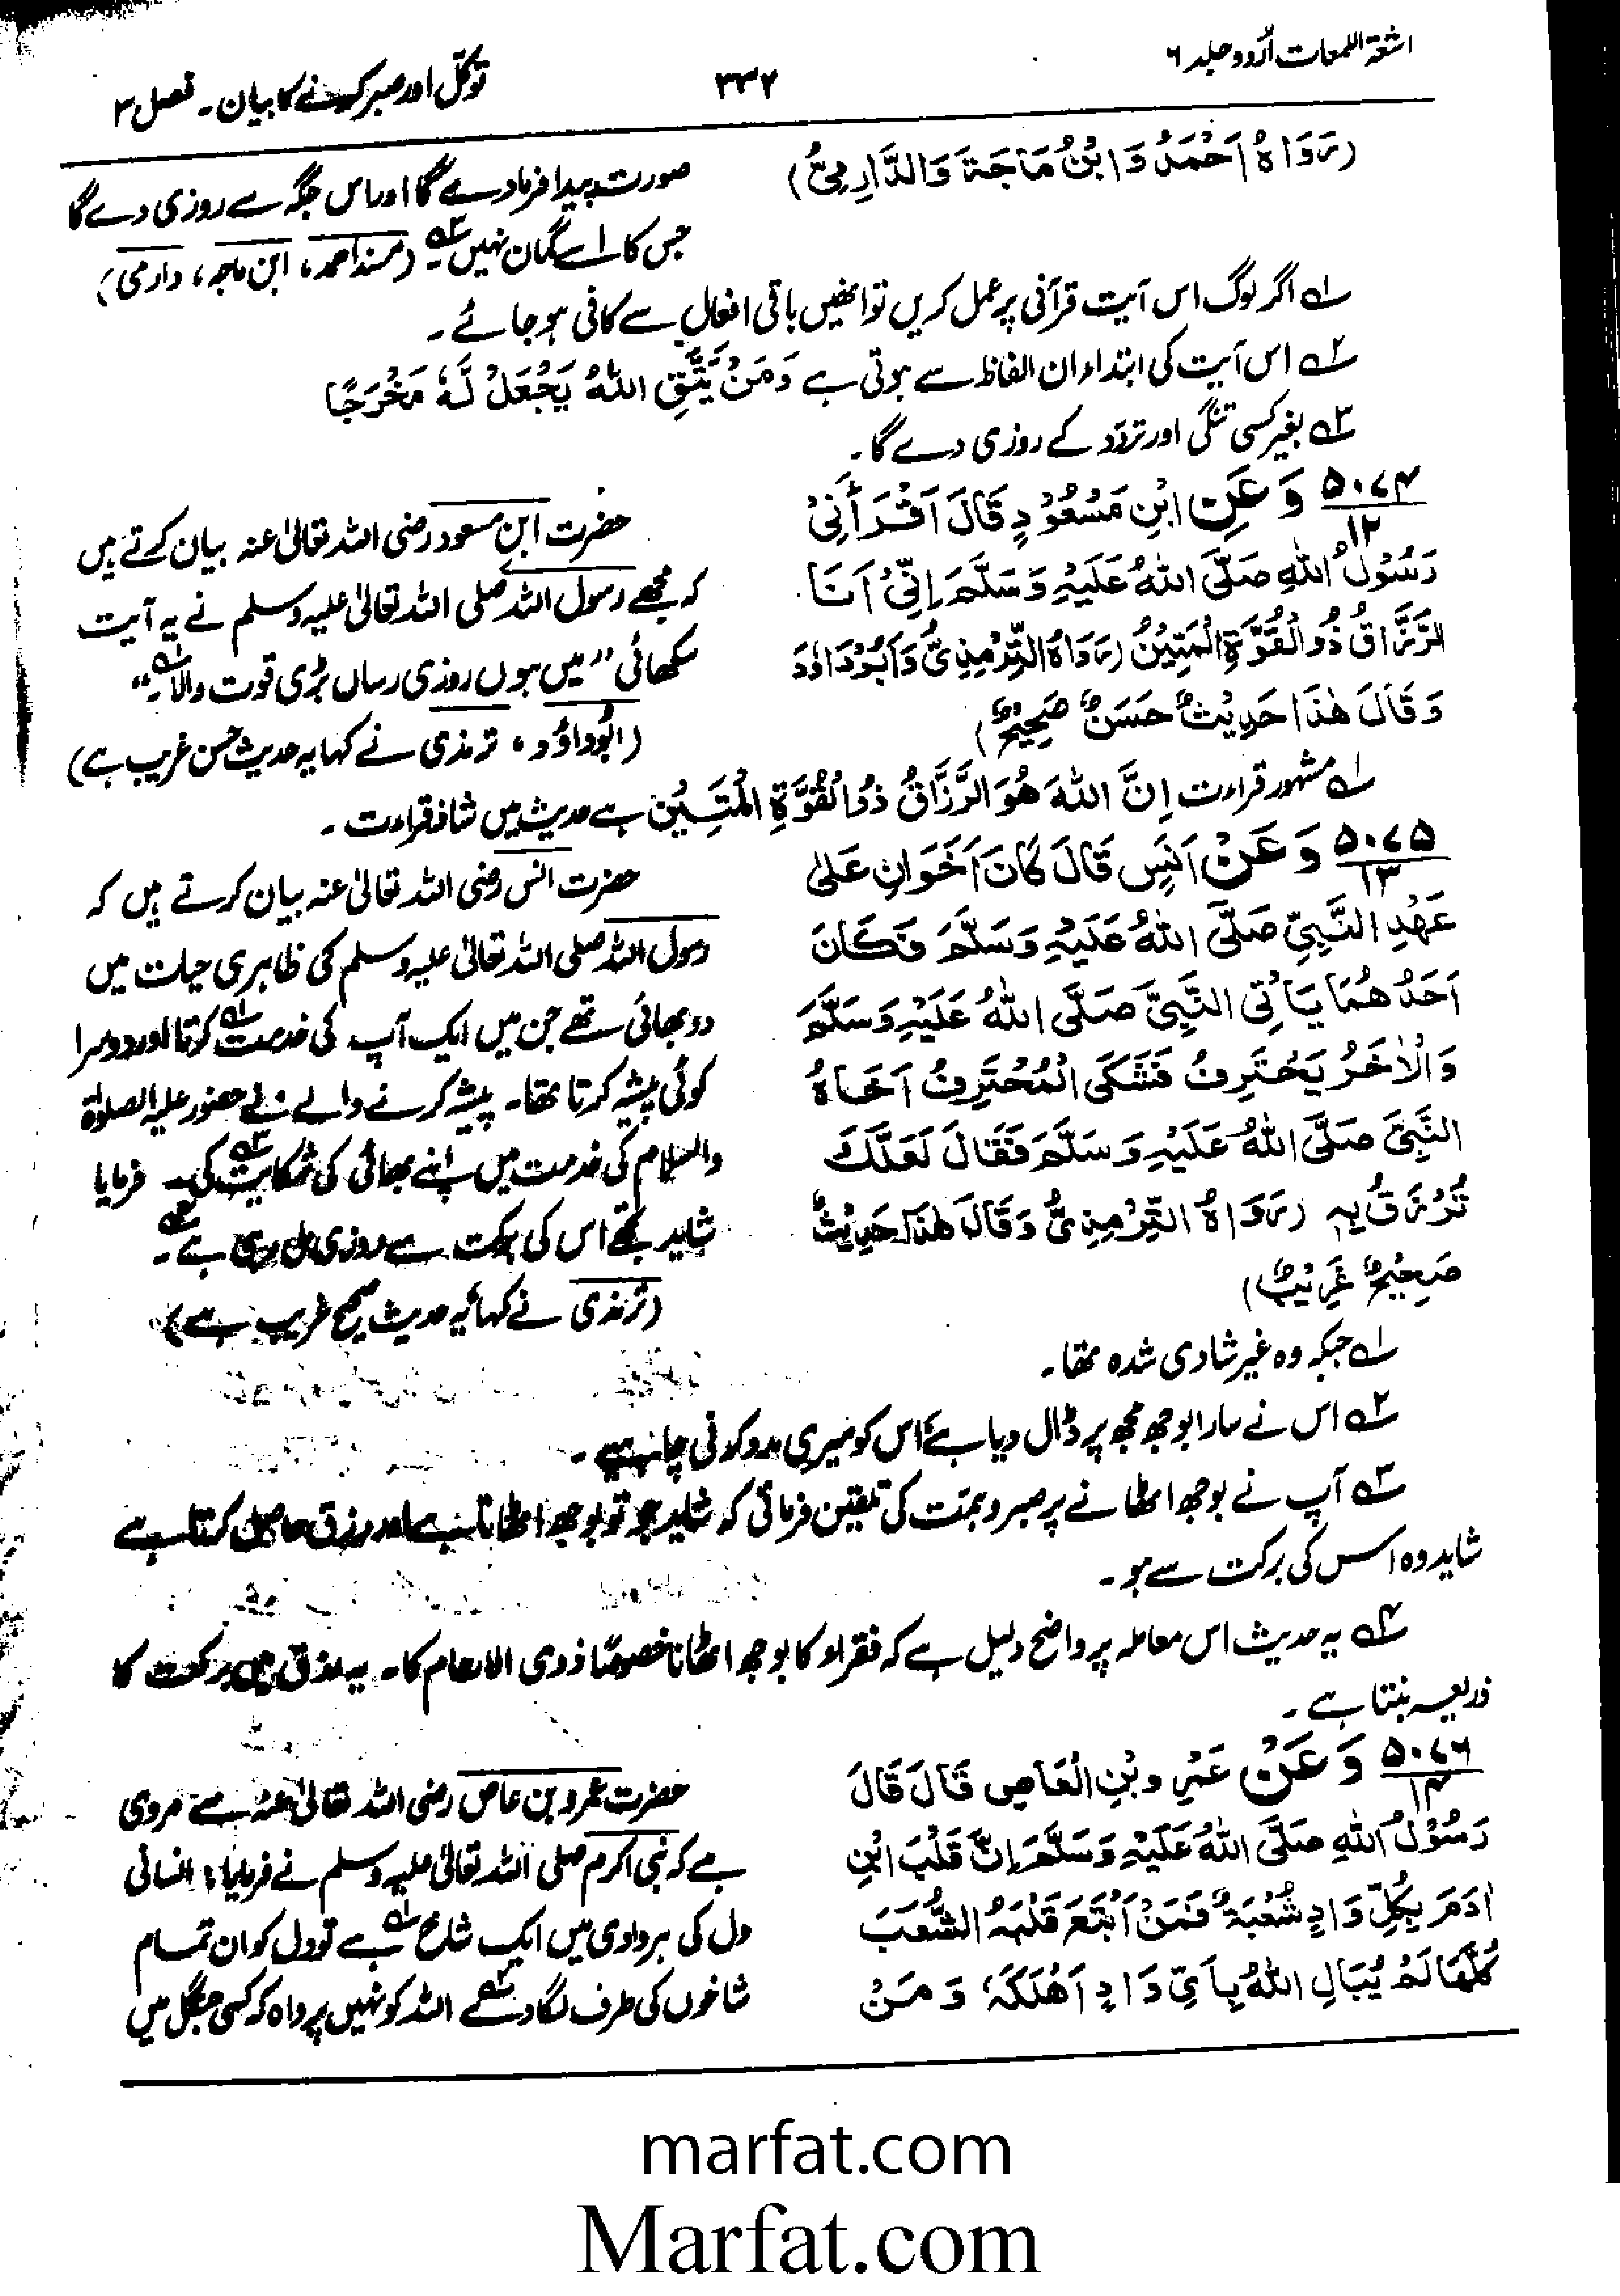 اشعۃ اللمعات اُردو جلد ۶
۳۳۲
توکّل اور صبر کرنے کا بیان۔ فصل ۳
(رَوَاہُ اَحْمَدُ وَابْنُ مَاجَۃَ وَالدَّارِمِیُّ)
صورت پیدا فرمادے گا اور اس جگہ سے روزی دے گا
جس کا اسے گمان نہیں ۳؎ (مسند احمد، ابن ماجہ، دارمی)
۱؎ اگر لوگ اس آیت قرآنی پر عمل کریں تو انھیں باقی افعال سے کافی ہو جائے۔
۲؎ اس آیت کی ابتداء ان الفاظ سے ہوتی ہے وَمَنْ یَّتَّقِ اللہُ یَجْعَلْ لَّہٗ مَخْرَجًا
۳؎ بغیر کسی تنگی اور تردّد کے روزی دے گا۔
۵۰۷۴/۱۲ وَعَنِ ابْنِ مَسْعُوْدٍ قَالَ اَقْرَأَنِیْ
رَسُوْلُ اللہِ صَلَّی اللہُ عَلَیْہِ وَسَلَّمَ اِنِّیْ اَنَا
الرَّزَّاقُ ذُو الْقُوَّۃِ الْمَتِیْنُ (رَوَاہُ التِّرْمِذِیُّ وَاَبُوْدَاؤدَ
وَقَالَ ھٰذَا حَدِیْثٌ حَسَنٌ صَحِیْحٌ)
حضرت ابن مسعود رضی اللہ تعالیٰ عنہ بیان کرتے ہیں
کہ مجھے رسول اللہ صلی اللہ تعالیٰ علیہ وسلم نے یہ آیت
سکھائی ”میں ہوں روزی رساں بڑی قوت والا ۱؎۔“
(ابوداؤد، ترمذی نے کہا یہ حدیث حسن غریب ہے)
۱؎ مشہور قراءت اِنَّ اللہَ ھُوَ الرَّزَّاقُ ذُو الْقُوَّۃِ الْمَتِیْنُ ہے حدیث میں شاذ قراءت۔
۵۰۷۵/۱۳ وَعَنْ اَنَسٍ قَالَ کَانَ اَخَوَانِ عَلٰی
عَھْدِ النَّبِیِّ صَلَّی اللہُ عَلَیْہِ وَسَلَّمَ فَکَانَ
اَحَدُھُمَا یَأْتِی النَّبِیَّ صَلَّی اللہُ عَلَیْہِ وَسَلَّمَ
وَالْاٰخَرُ یَحْتَرِفُ فَشَکَی الْمُحْتَرِفُ اَخَاہُ
النَّبِیَّ صَلَّی اللہُ عَلَیْہِ وَسَلَّمَ فَقَالَ لَعَلَّکَ
تُرْزَقُ بِہٖ (رَوَاہُ التِّرْمِذِیُّ وَقَالَ ھٰذَا حَدِیْثٌ
صَحِیْحٌ غَرِیْبٌ)
حضرت انس رضی اللہ تعالیٰ عنہ بیان کرتے ہیں کہ
رسول اللہ صلی اللہ تعالیٰ علیہ وسلم کی ظاہری حیات میں
دو بھائی تھے جن میں ایک آپ کی خدمت ۱؎ کرتا اور دوسرا
کوئی پیشہ کرتا تھا۔ پیشہ کرنے والے نے حضور علیہ الصلوٰۃ
والسلام کی خدمت میں اپنے بھائی کی شکایت ۲؎ کی۔ فرمایا
شاید تجھے اس کی برکت سے روزی مل رہی ہے۔
(ترمذی نے کہا یہ حدیث صحیح غریب ہے)
۱؎ جبکہ وہ غیر شادی شدہ تھا۔
۲؎ اس نے سارا بوجھ مجھ پر ڈال دیا ہے اس کو میری مدد کرنی چاہیے۔
۳؎ آپ نے بوجھ اٹھانے پر صبر و ہمت کی تلقین فرمائی کہ شاید جو تو بوجھ اٹھاتا ہے اور رزق حاصل کرتا ہے
شاید وہ اس کی برکت سے ہو۔
۴؎ یہ حدیث اس معاملہ پر واضح دلیل ہے کہ فقراء کا بوجھ اٹھانا خصوصًا ذوی الارحام کا۔ یہ رزق میں برکت کا
ذریعہ بنتا ہے۔
۵۰۷۶/۱۴ وَعَنْ عَمْرِو بْنِ الْعَاصِ قَالَ قَالَ
رَسُوْلُ اللہِ صَلَّی اللہُ عَلَیْہِ وَسَلَّمَ اِنَّ قَلْبَ ابْنِ
اٰدَمَ بِکُلِّ وَادٍ شُعْبَۃٌ فَمَنْ اَتْبَعَ قَلْبَہُ الشُّعَبَ
کُلَّھَا لَمْ یُبَالِ اللہُ بِاَیِّ وَادٍ اَھْلَکَہٗ وَمَنْ
حضرت عمرو بن عاص رضی اللہ تعالیٰ عنہ سے مروی
ہے کہ نبی اکرم صلی اللہ تعالیٰ علیہ وسلم نے فرمایا: انسانی
دل کی ہر وادی میں ایک شاخ ۱؎ ہے تو دل کو ان تمام
شاخوں کی طرف لگا دے ۲؎ اللہ کو نہیں پرواہ کہ کسی جنگل میں
marfat.com
Marfat.com